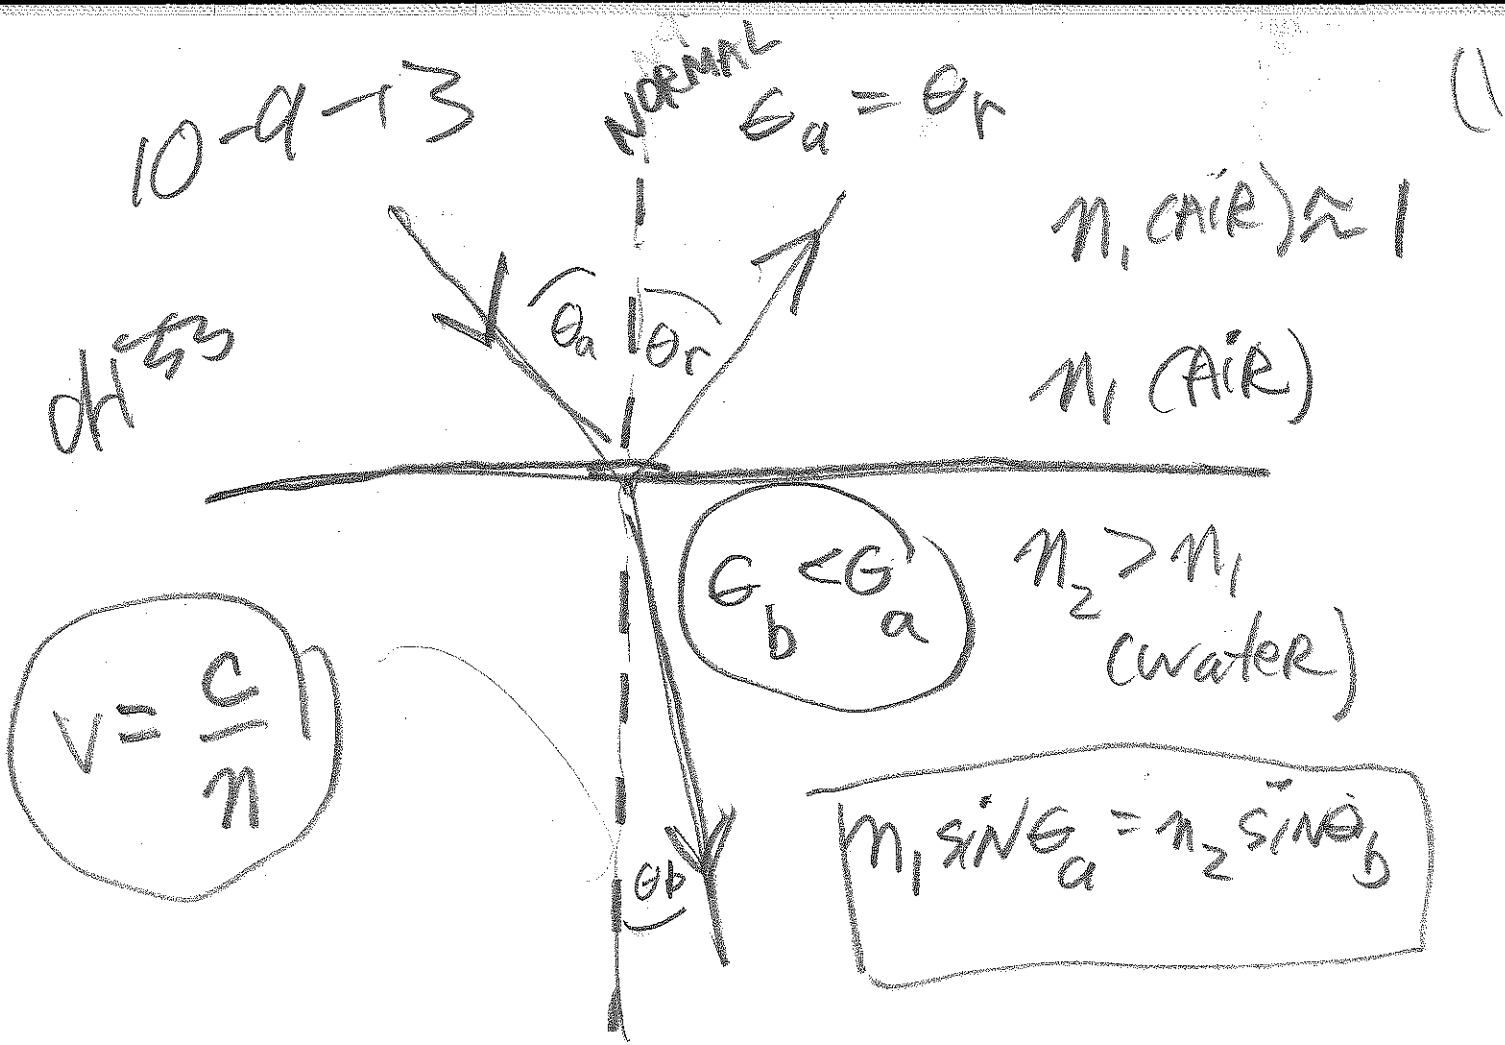 10-9-13
NORMAL
θa = θr
(1
n₁ (AiR) ≈ 1
θa
θr
n₁ (AiR)
θb < θa
n₂ > n₁
(wateR)
v = c/n
n₁ siNθa = n₂ siNθb
θb